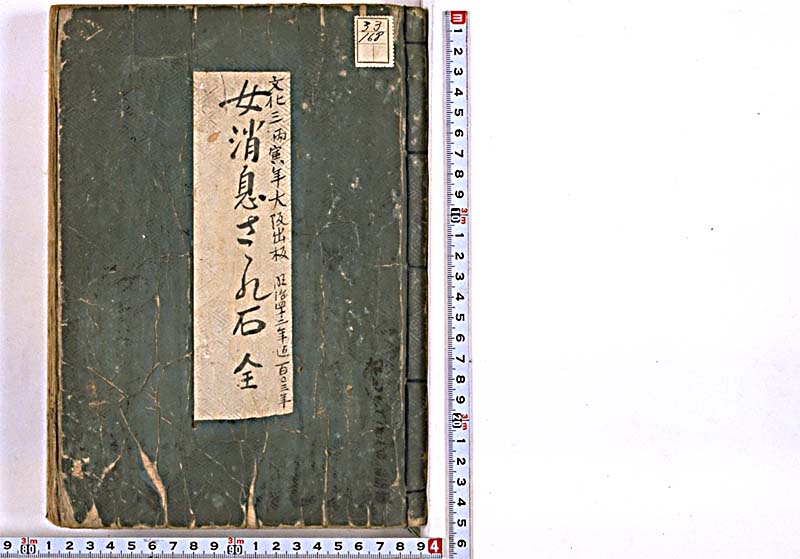 33
168
文化三丙寅年大阪出板 明治四十三年迠一百〇三年
女消息さゞれ石 全
m 1 2 3 4 5 6 7 8 9 3m 10 1 2 3 4 5 6 7 8 9 3m 20 1 2 3 4 5 6
9 3m 80 1 2 3 4 5 6 7 8 9 3m 90 1 2 3 4 5 6 7 8 9 4